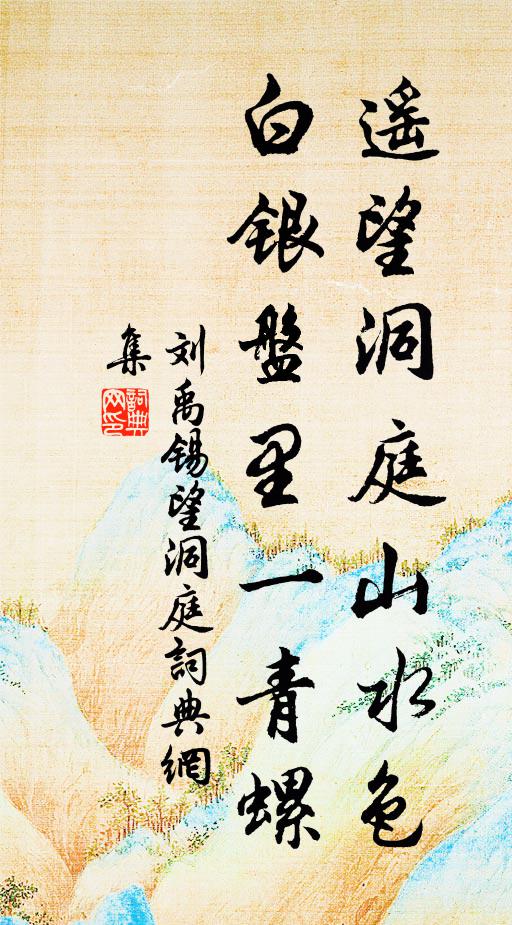 遥望洞庭山水色
白銀盤里一青螺
刘禹锡望洞庭詞典網
集
詞典
网印